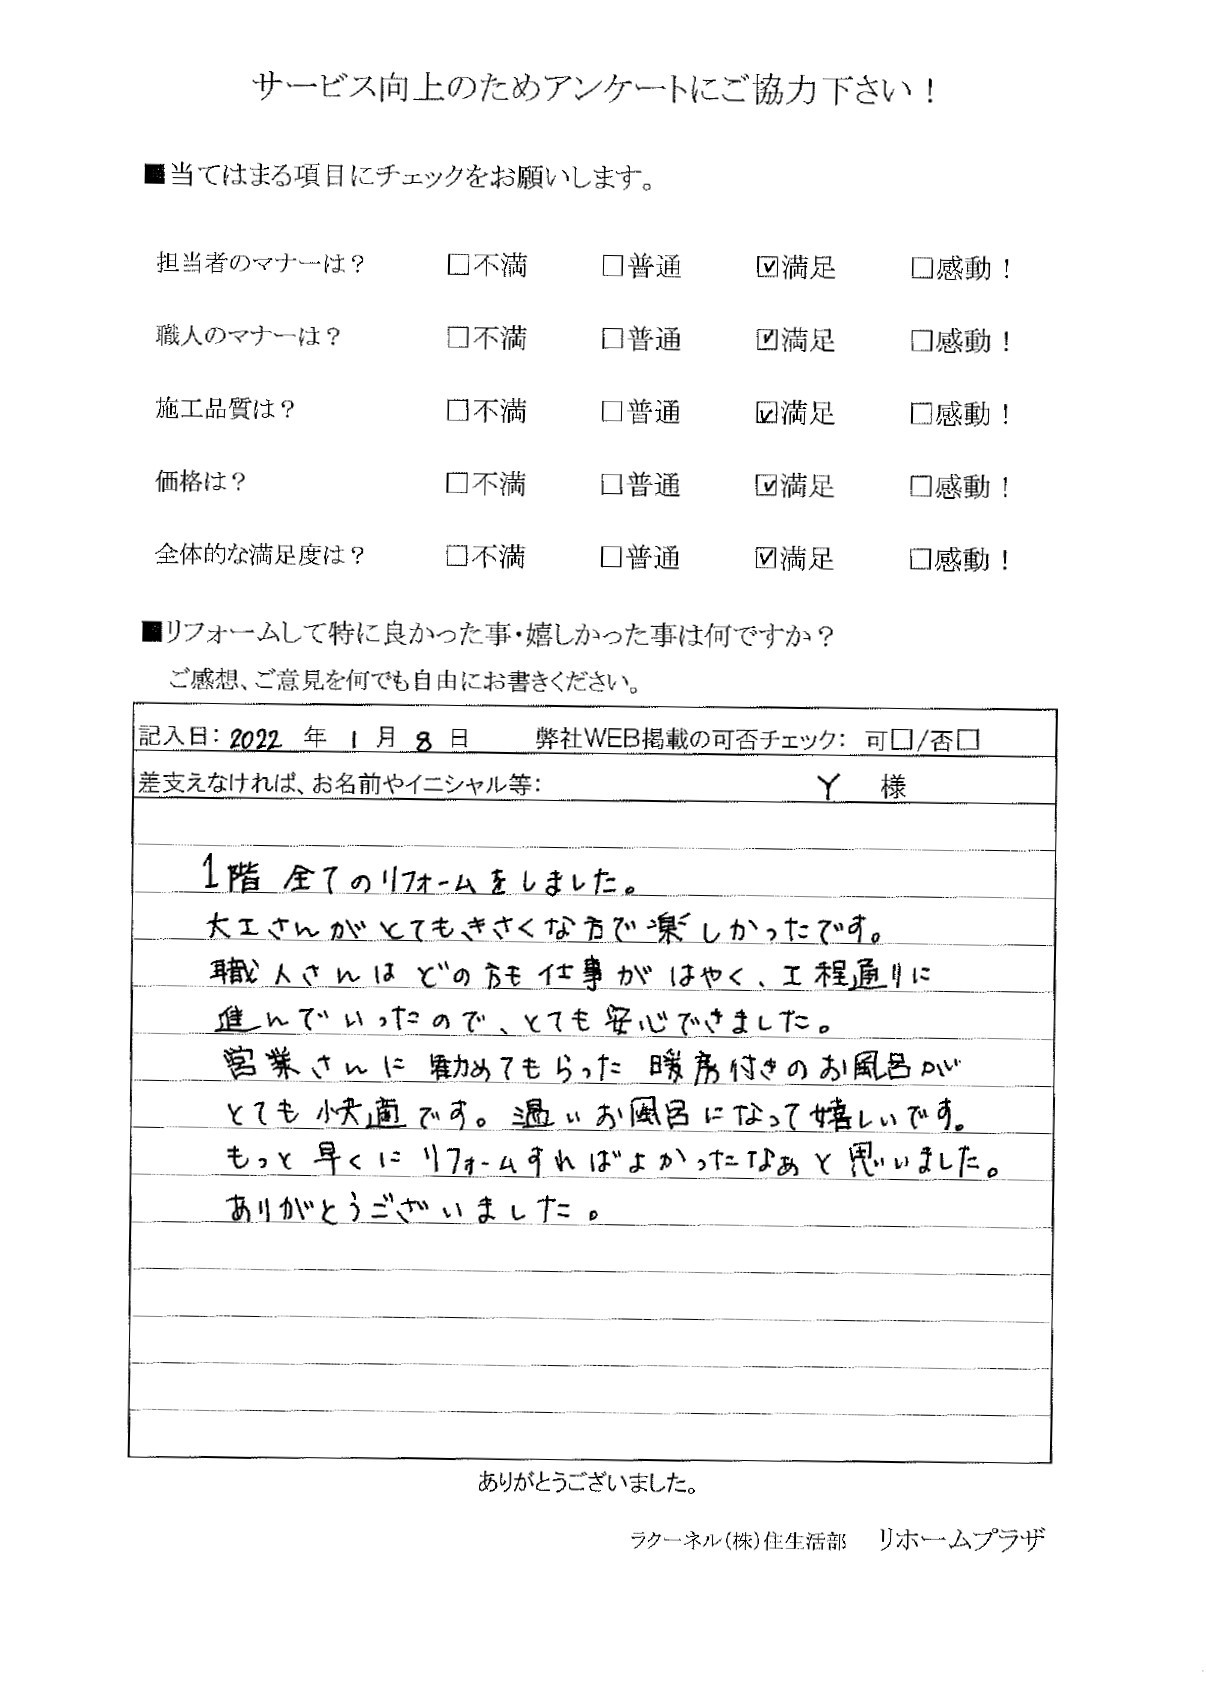 サービス向上のためアンケートにご協力下さい！
■当てはまる項目にチェックをお願いします。
担当者のマナーは？ □不満 □普通 ☑満足 □感動！
職人のマナーは？ □不満 □普通 ☑満足 □感動！
施工品質は？ □不満 □普通 ☑満足 □感動！
価格は？ □不満 □普通 ☑満足 □感動！
全体的な満足度は？ □不満 □普通 ☑満足 □感動！
■リフォームして特に良かった事・嬉しかった事は何ですか？
ご感想、ご意見を何でも自由にお書きください。
記入日：2022 年 1 月 8 日 弊社WEB掲載の可否チェック： 可□/否□
差支えなければ、お名前やイニシャル等： Y 様
1階 全てのリフォームをしました。
大工さんがとてもきさくな方で楽しかったです。
職人さんはどの方も仕事がはやく、工程通りに
進んでいったので、とても安心できました。
営業さんに勧めてもらった 暖房付きのお風呂が
とても快適です。温いお風呂になって嬉しいです。
もっと早くにリフォームすればよかったなぁと思いました。
ありがとうございました。
ありがとうございました。
ラクーネル（株）住生活部 リホームプラザ